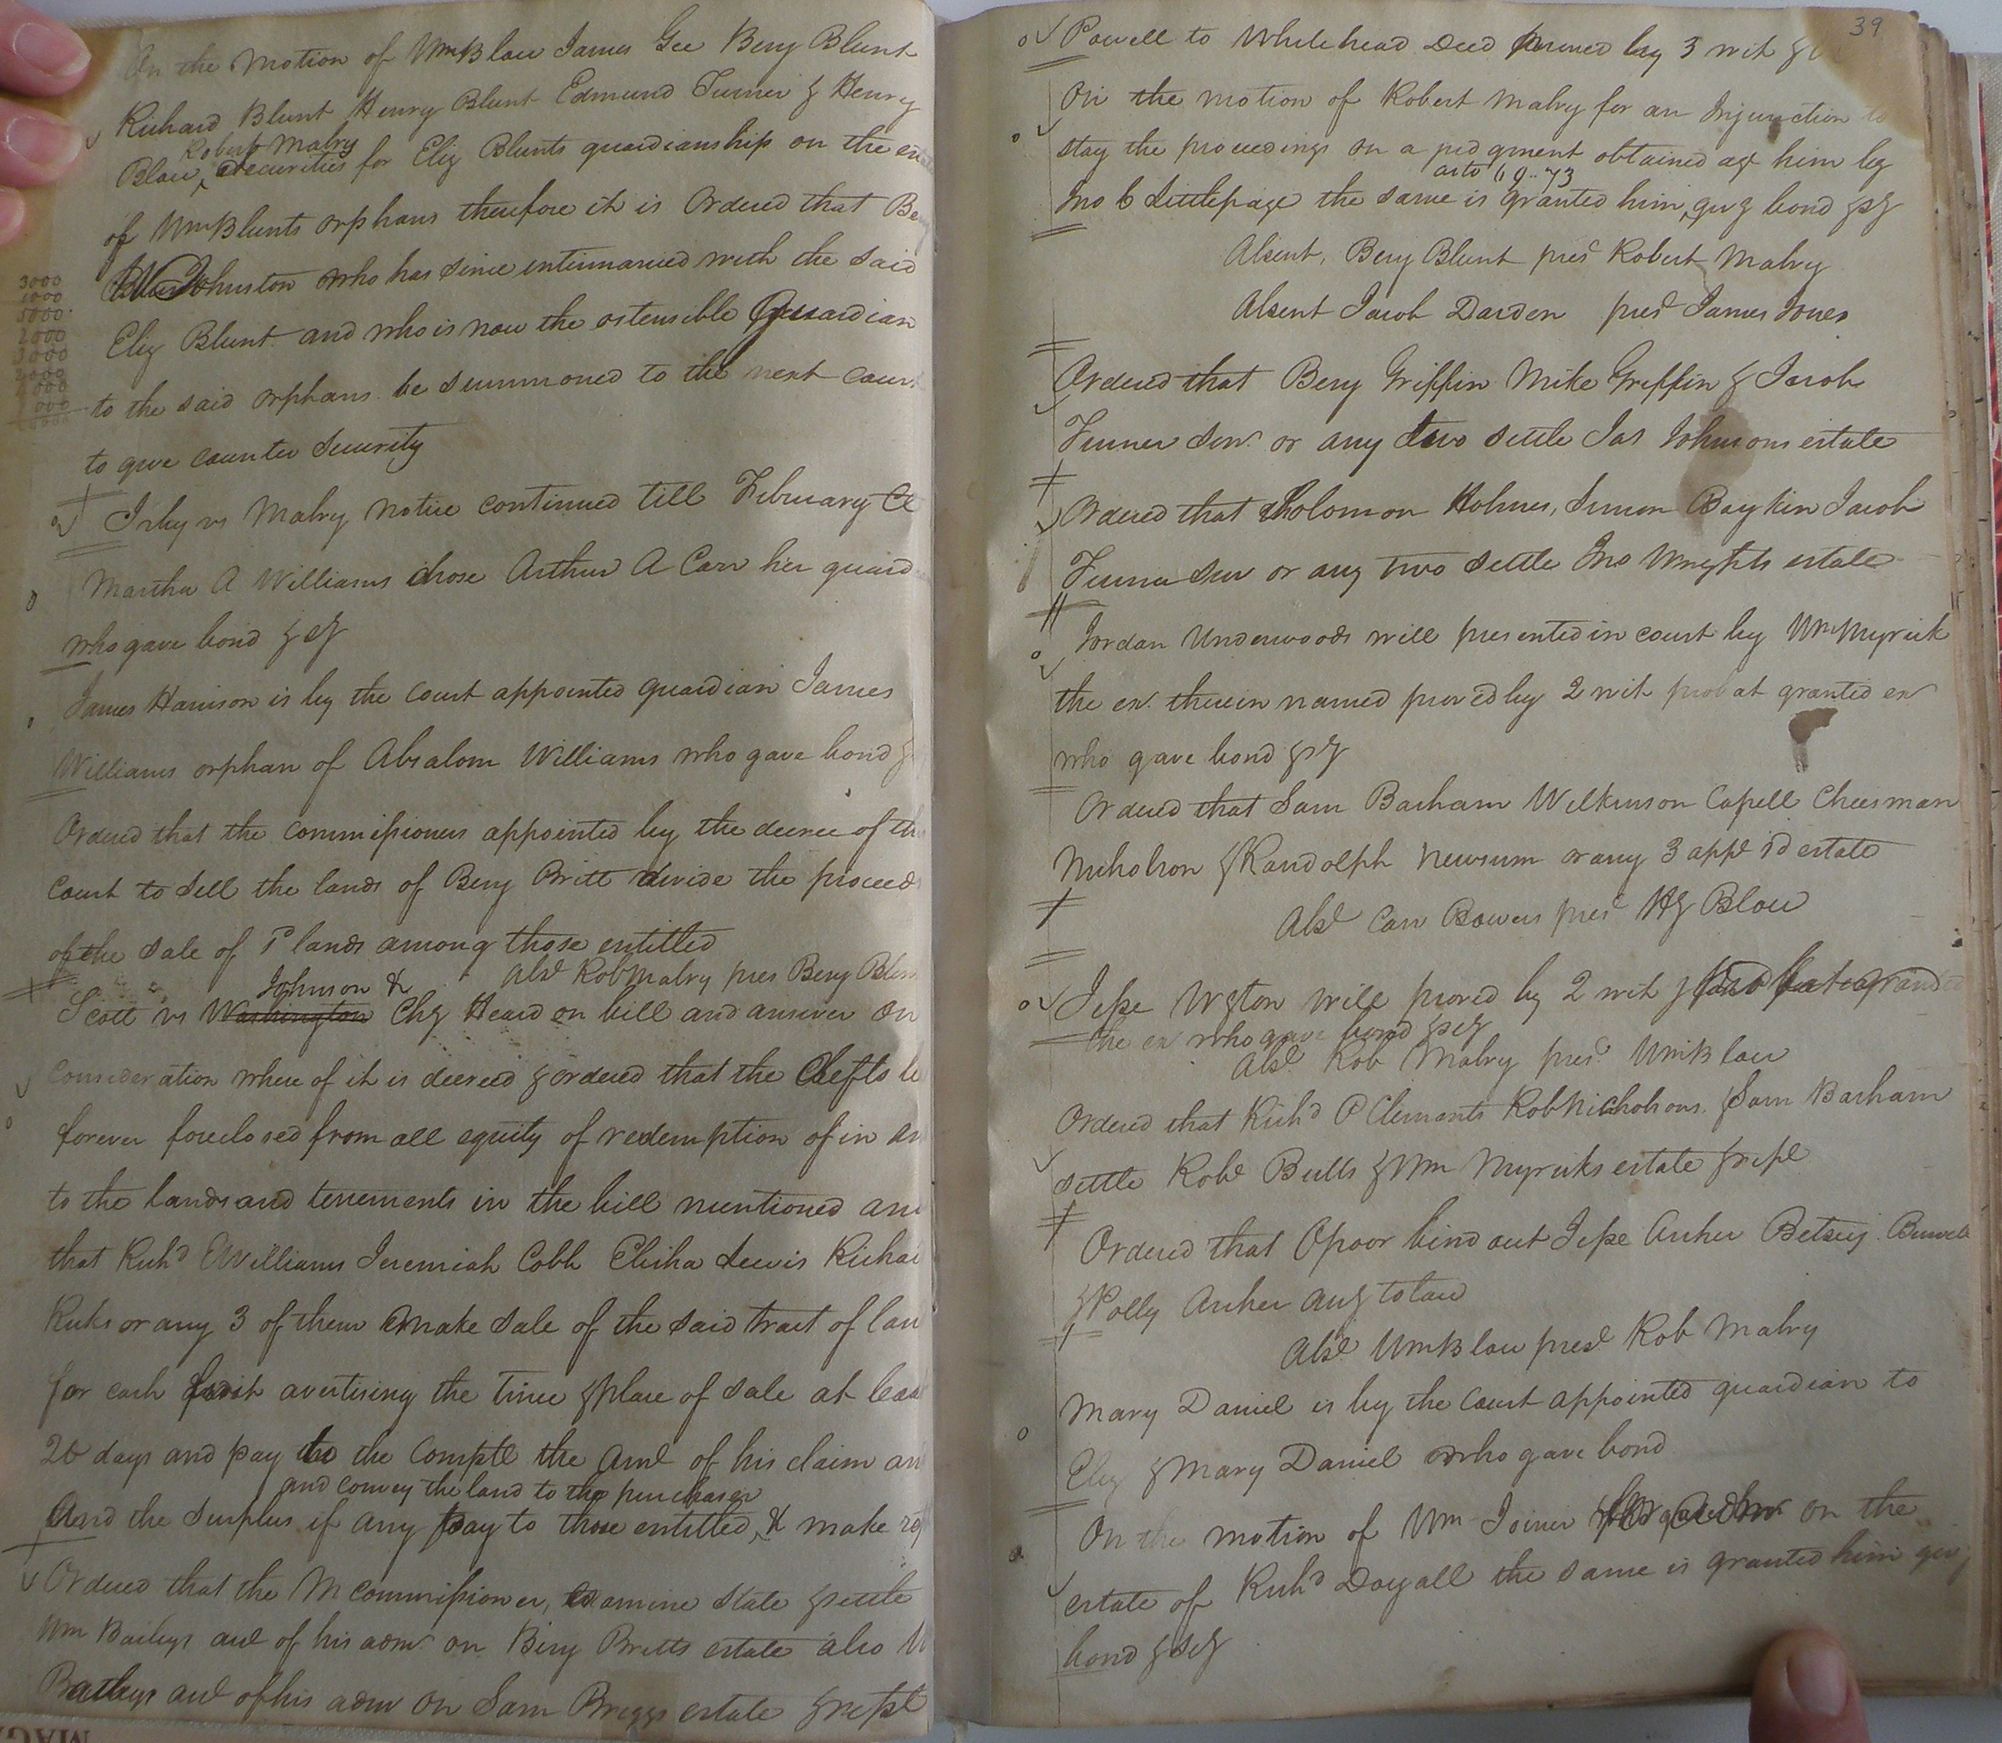 On the motion of Wm Blow James Gee Benj Blunt
Richard Blunt Henry Blunt Edmund Turner & Henry
Robert Mabry
Blow, securities for Eliz Blunts guardianship on the
of Wm Blunts orphans therefore it is Ordered that
Johnston who has since intermarried with the said
Eliz Blunt and who is now the ostensible Guardian
to the said orphans be summoned to the next court
to give counter security
3000
1000
5000
2000
3000
Irby vs Mabry notice continued till February Ct
Martha A Williams chose Arthur A Carr her guard
who gave bond & sy
James Harrison is by the court appointed guardian James
Williams orphan of Absalom Williams who gave bond &
Ordered that the commissioners appointed by the decree of th
court to sell the lands of Benj Britt divide the proceeds
of the sale of sd lands among those entitled
Abst Rob Mabry pres Benj Blun
Johnson &
Scott vs Washington Chy Heard on bill and answer On
consideration where of it is decreed & ordered that the Defts be
forever foreclosed from all equity of redemption of in an
to the lands and tenements in the bill mentioned and
that Richd Williams Jeremiah Cobb Elisha Lewis Richar
Ricks or any 3 of them make sale of the said tract of lan
for cash first avertising the time & place of sale at leas
20 days and pay to the Complt the Amt of his claim an
and convey the land to the purchaser
And the surplus if any pay to those entitled, & make re
Ordered that the M commissioner, examine state & settle
Wm Baileys acct of his admr on Benj Britts estate also W
Baileys acct of his admr on Sam Briggs estate & rept
39
Powell to Whitehead Deed proved by 3 wit &
On the motion of Robert Mabry for an Injunction to
stay the proceedings on a judgment obtained agt him by
as to 69..73
Jno C Littlepage the same is granted him, givg bond & sy
Absent, Benj Blunt prest Robert Mabry
Absent Jacob Darden prest James Jones
Ordered that Benj Griffin Mike Griffin & Jacob
Turner Senr or any two settle Jas Johnsons estate
Ordered that Solomon Holmes, Simon Boykin Jacob
Turner Senr or any two settle Jno Wrights estate
Jordan Underwoods will presented in court by Wm Myrick
the exr. therein named proved by 2 wit probat granted exr
who gave bond & sy
Ordered that Sam Barham Wilkinson Capell Cheesman
Nicholson & Randolph Newsum or any 3 appr sd estate
Abst Carr Bowers prest Hy Blow
Jesse Wgton will proved by 2 wit & granted
the exr who gave bond & sy
Abst Rob Mabry prest Wm Blow
Ordered that Richd P Clements Rob Nicholsons & Sam Barham
settle Robt Butts & Wm Myricks estate & rept
Ordered that Opoor bind out Jesse Archer Betsey
& Polly Archer accg to law
Abst Wm Blow prest Rob Mabry
Mary Daniel is by the court appointed guardian to
Eliz & Mary Daniel who gave bond
On the motion of Wm Joiner for admr on the
estate of Richd Doyall the same is granted him givg
bond & sy